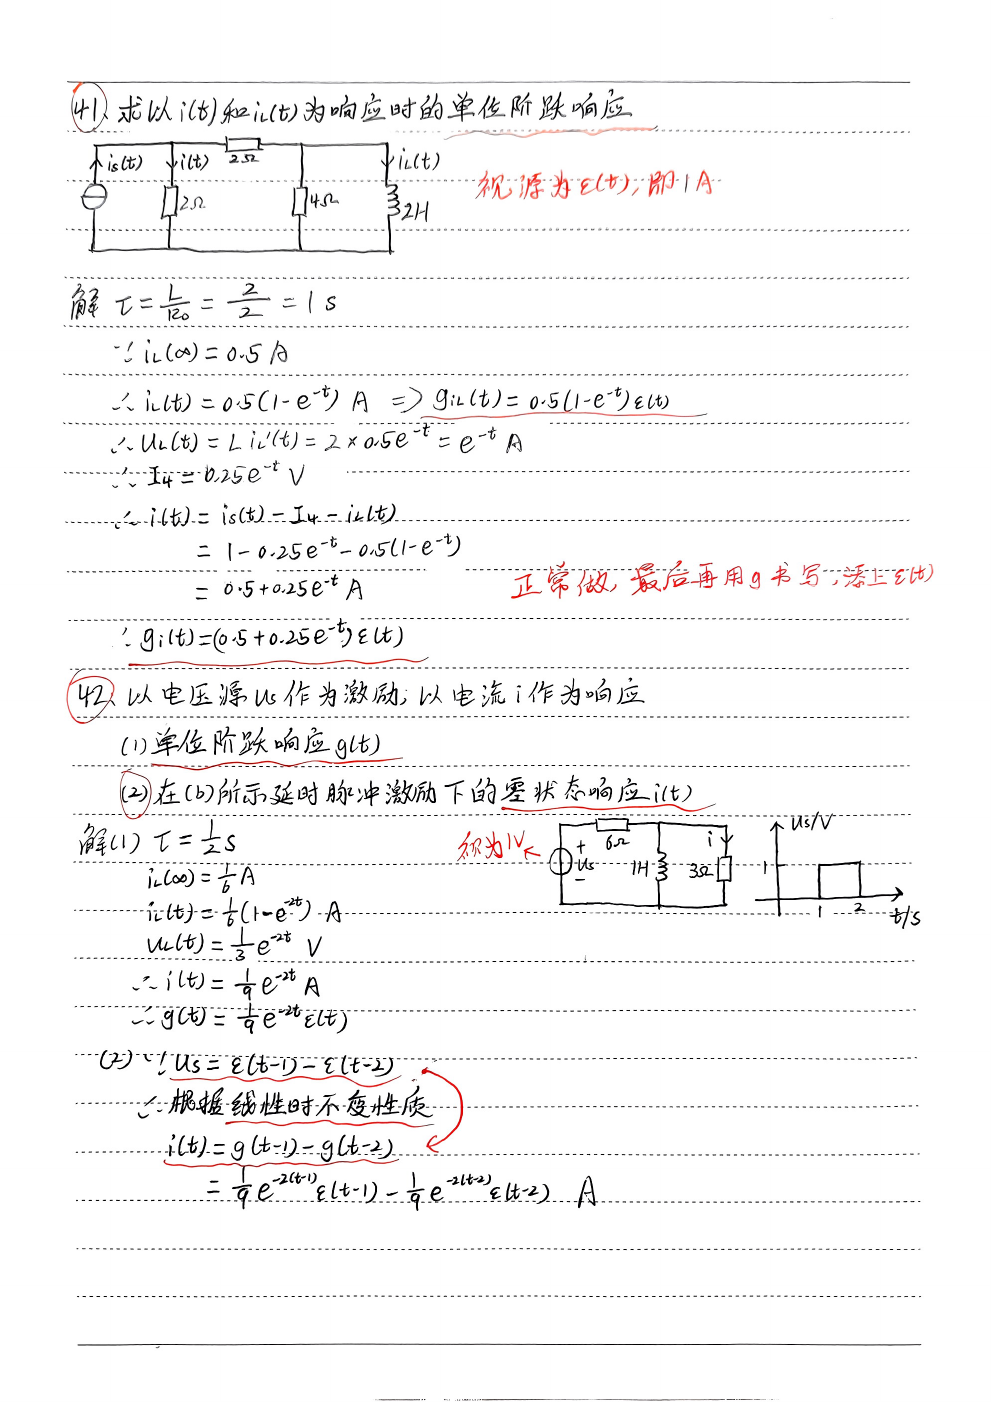 41、求以i(t)和iL(t)为响应时的单位阶跃响应
is(t) i(t) 2Ω iL(t)
2Ω 4Ω 2H
视源为ε(t),即1A
解 τ=L/R₀=2/2=1s
∵iL(∞)=0.5A
∴iL(t)=0.5(1-e^-t) A => giL(t)=0.5(1-e^-t)ε(t)
∴UL(t)=LiL'(t)=2×0.5e^-t=e^-t A
∴I4=0.25e^-t V
∴i(t)=is(t)-I4-iL(t)
=1-0.25e^-t-0.5(1-e^-t)
=0.5+0.25e^-t A
正常做,最后再用g书写,添上ε(t)
∴gi(t)=(0.5+0.25e^-t)ε(t)
42、以电压源Us作为激励,以电流i作为响应
(1)单位阶跃响应g(t)
(2)在(b)所示延时脉冲激励下的零状态响应i(t)
解(1) τ=1/2s
视为1V
+ Us - 6Ω 1H i 3Ω
Us/V 1 1 2 t/s
iL(∞)=1/6A
iL(t)=1/6(1-e^-2t) A
UL(t)=1/3e^-2t V
∴i(t)=1/9e^-2t A
∴g(t)=1/9e^-2tε(t)
(2)∵Us=ε(t-1)-ε(t-2)
∴根据线性时不变性质
i(t)=g(t-1)-g(t-2)
=1/9e^-2(t-1)ε(t-1)-1/9e^-2(t-2)ε(t-2) A